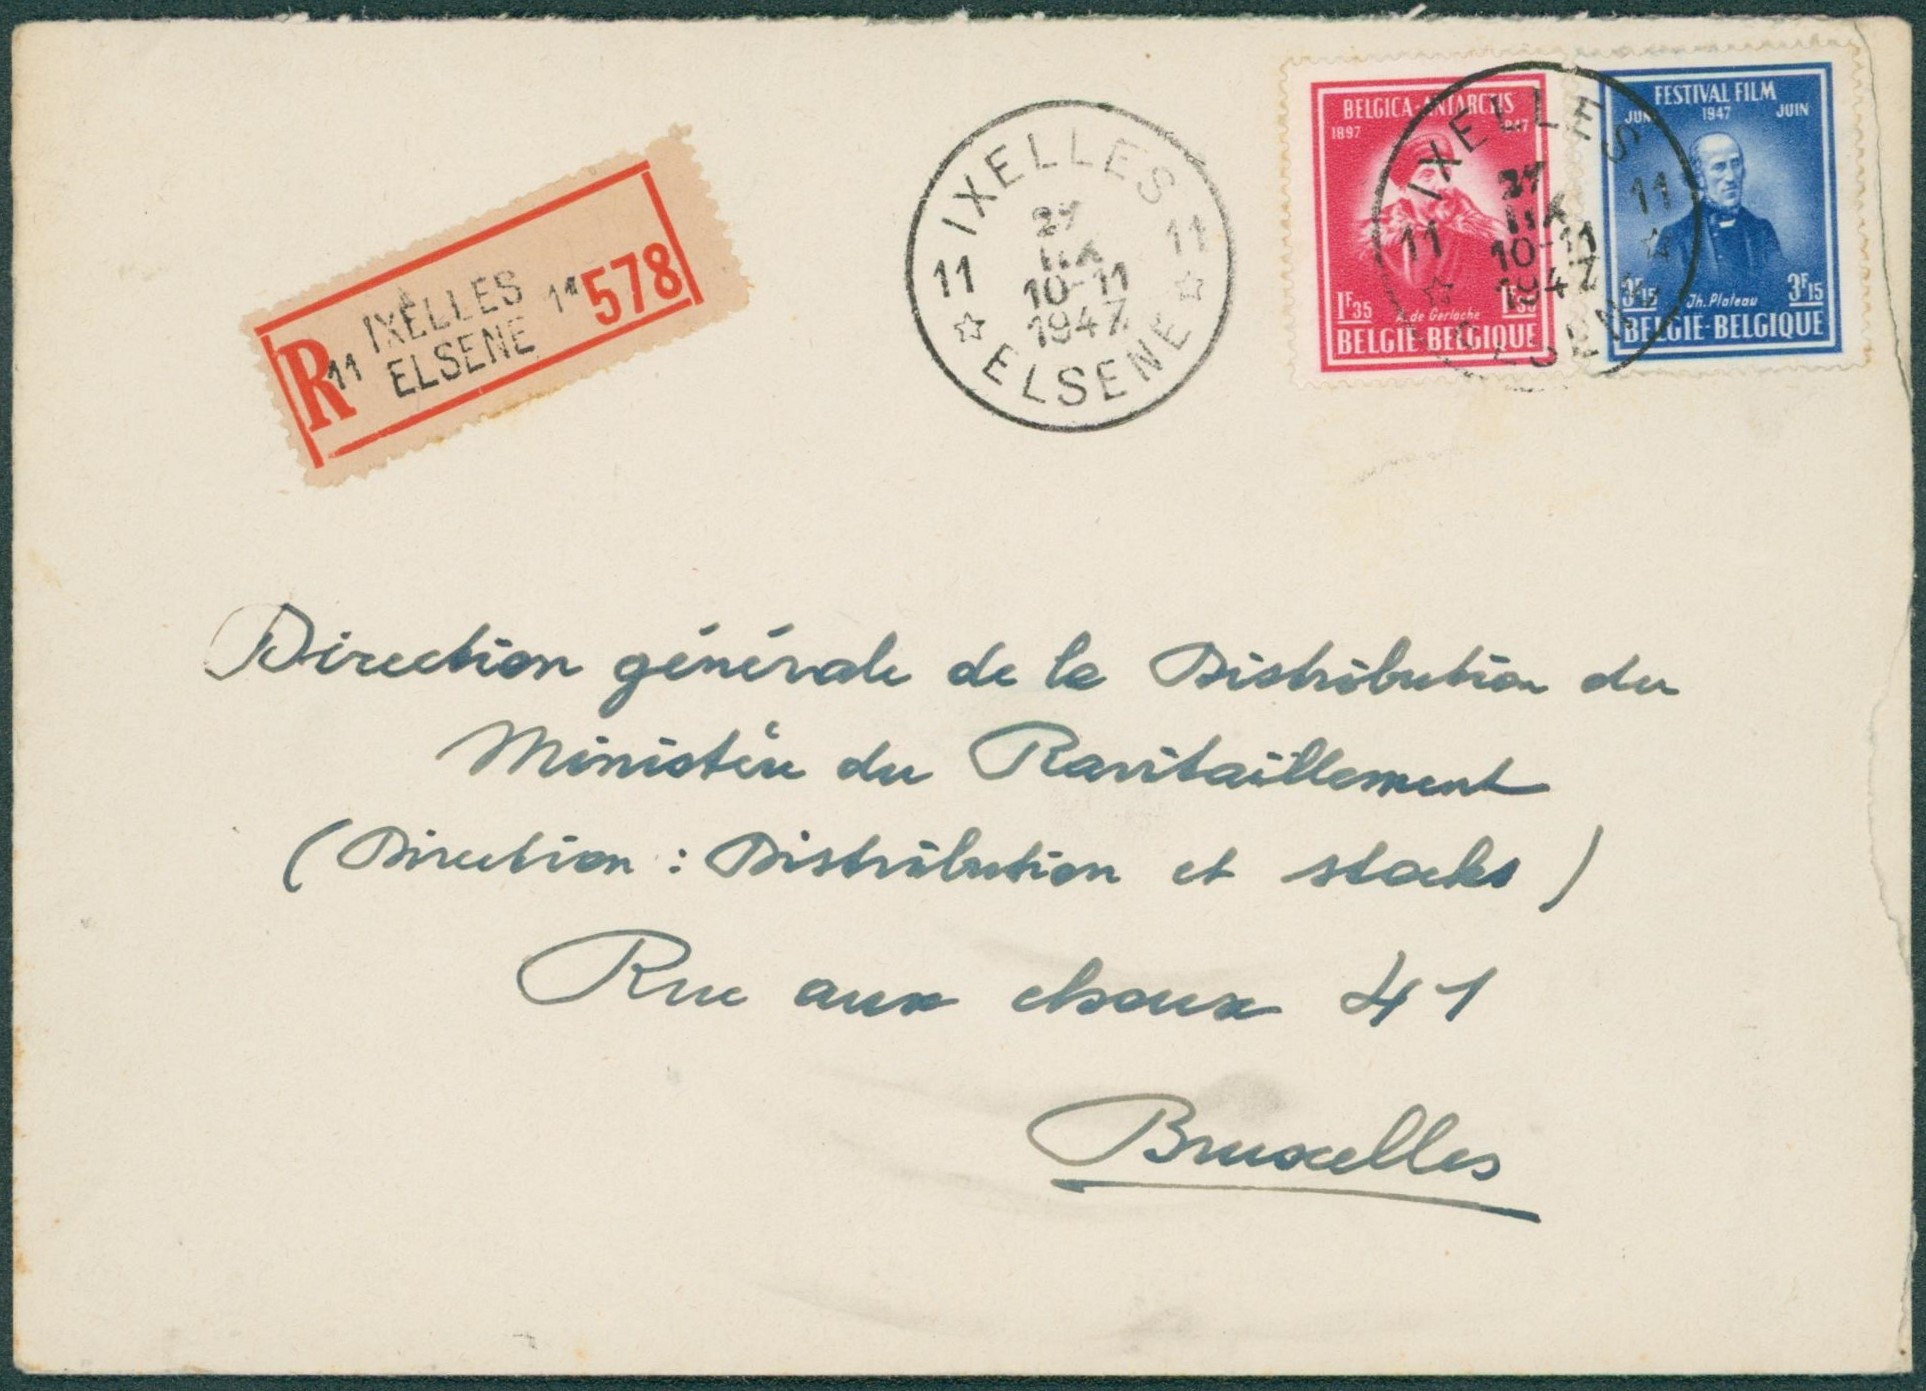 R 11 IXELLES ELSENE 11 578
IXELLES
11 11
10-11
1947
ELSENE
BELGICA-ANTARCTIS
1897 1947
1F35 1F35
A. de Gerlache
BELGIE-BELGIQUE
FESTIVAL FILM
JUNI 1947 JUIN
3F15 3F15
Jh. Plateau
BELGIE-BELGIQUE
IXELLES
11 11
10-11
1947
ELSENE
Direction générale de la Distribution du
Ministère du Ravitaillement
(Direction : Distribution et stocks)
Rue aux choux 41
Bruxelles